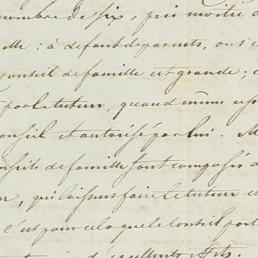 nombre de six, pris moitié d
ille : à defaut de parents, on s
conseil de famille est grande ; c
par le tuteur, quand même
conseil et autorisé par lui. M
nseils de famille sont composés d
, qui laissent faire le tuteur
c'est pour cela que le conseil
d'excellents